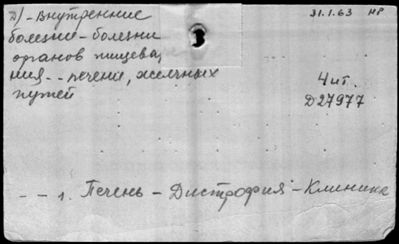 2) - Внутренние
болезни - болезни
органов пищева,
ния - - печени, желчных
путей
31.1.63 НР
Чит.
D27977
- - 1. Печень - Дистрофия - Клиника